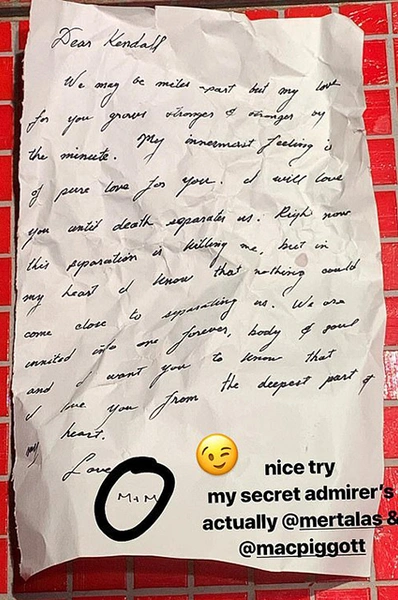 Dear Kendall
We may be miles -part but my love
for you grows stronger & stronger by
the minute. My innermost feeling is
of pure love for you. I will love
you until death separates us. Right now
this separation is killing me, but in
my heart I know that nothing could
come close to separating us. We are
united into one forever, body & soul
and I want you to know that
I love you from the deepest part of
my heart.
Love
M+M
😉 nice try
my secret admirer's
actually @mertalas &
@macpiggott